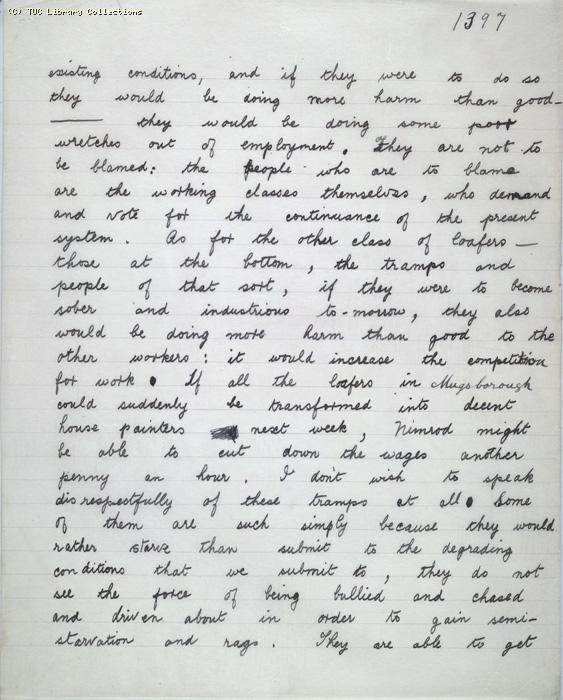 (C) TUC Library Collections
1397
existing conditions, and if they were to do so
they would be doing more harm than good-
—— they would be doing some poor
wretches out of employment. They are not to
be blamed: the people who are to blame
are the working classes themselves, who demand
and vote for the continuance of the present
system. As for the other class of loafers —
those at the bottom, the tramps and
people of that sort, if they were to become
sober and industrious to-morrow, they also
would be doing more harm than good to the
other workers: it would increase the competition
for work. If all the loafers in Mugsborough
could suddenly be transformed into decent
house painters next week, Nimrod might
be able to cut down the wages another
penny an hour. I don't wish to speak
disrespectfully of these tramps at all. Some
of them are such simply because they would
rather starve than submit to the degrading
conditions that we submit to, they do not
see the force of being bullied and chased
and driven about in order to gain semi-
starvation and rags. They are able to get